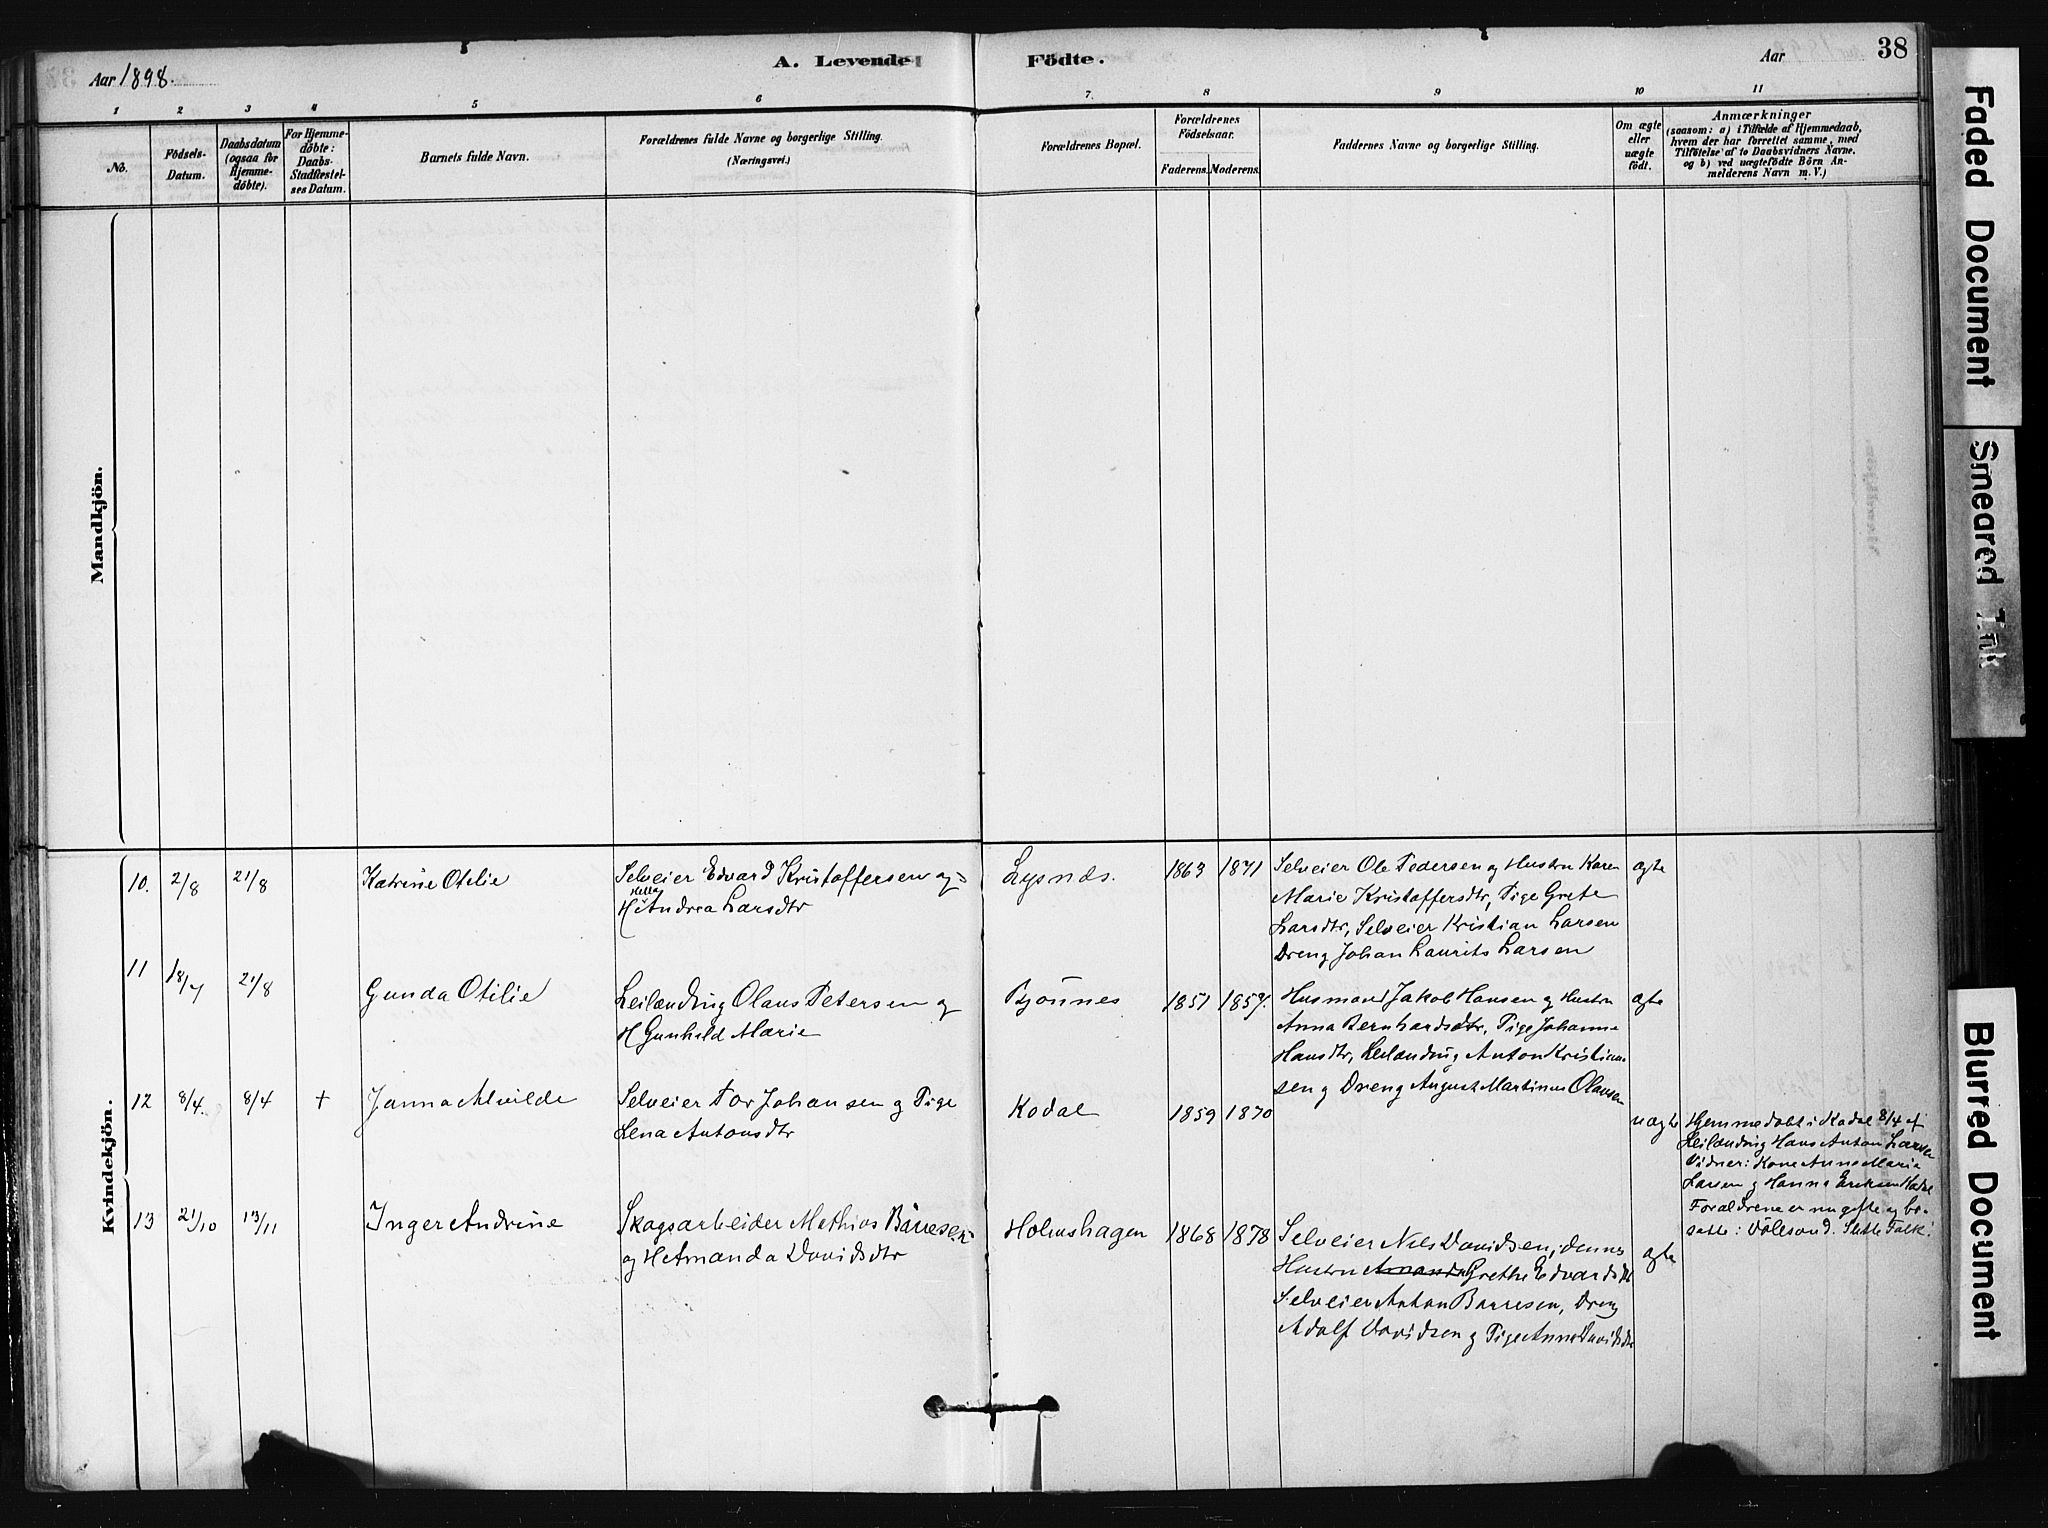 Aar 1898.
A. Levende Födte.
Aar
38
1 2 3 4 5 6 7 8 9 10 11
No.
Födsels-Datum.
Daabsdatum (ogsaa for Hjemme-döbte).
For Hjemme-döbte: Daabs-Stadfæstel-ses Datum.
Barnets fulde Navn.
Forældrenes fulde Navne og borgerlige Stilling.
(Næringsvei.)
Forældrenes Bopæl.
Forældrenes Födselsaar.
Faderens. Moderens.
Faddernes Navne og borgerlige Stilling.
Om ægte eller uægte födt.
Anmærkninger
(saasom: a) i Tilfælde af Hjemmedaab, hvem der har forrettet samme, med Tilföielse af to Daabsvidners Navne, og b) ved uægtefödte Börn Anmelderens Navn m. V.)
Mandkjön.
Kvindekjön.
10. 2/8 21/8 Katrine Otilie
Selveier Edvard Kristoffersen og
H Andrea Larsdtr
Lysnes. 1863 1871
Selveier Ole Pedersen og Hustru Karen
Marie Kristoffersdtr, Pige Grete
Larsdtr, Selveier Kristian Larsen
Dreng Johan Laurits Larsen
ægte
11 18/7 21/8 Gunda Otilie
Leilænding Olaus Petersen og
H Gunhild Marie
Bjönnes 1851 1857.
Husmand Jakob Hansen og Hustru
Anna Bernhardsdtr, Pige Johanne
Hansdtr, Leilænding Anton Kristian-
sen og Dreng August Martinus Olausen
ægte
12 8/4 8/4 + Janna Alvilde
Selveier Tor Johansen og Pige
Lena Antonsdtr
Kodal 1859 1870
uægte
Hjemmedøbt i Kodal 8/4 af
Leilænding Hans Anton Larsen
Vidner: Kone Anne Marie
Larsen og Hanna Eriksen Kodal
Forældrene er nu gifte og bo-
satte:
13 21/10 13/11 Inger Andrine
Skogsarbeider Mathias Bärresen
og H Amanda Davidsdtr
Holmshagen 1868 1878
Selveier Nils Davidsen, dennes
Hustru Amanda Grethe Edvardsdtr
Selveier Anton Barresen, Dreng
Adolf Davidsen og Pige Anne Davidsdtr
ægte
Faded Document
Smeared Ink
Blurred Document